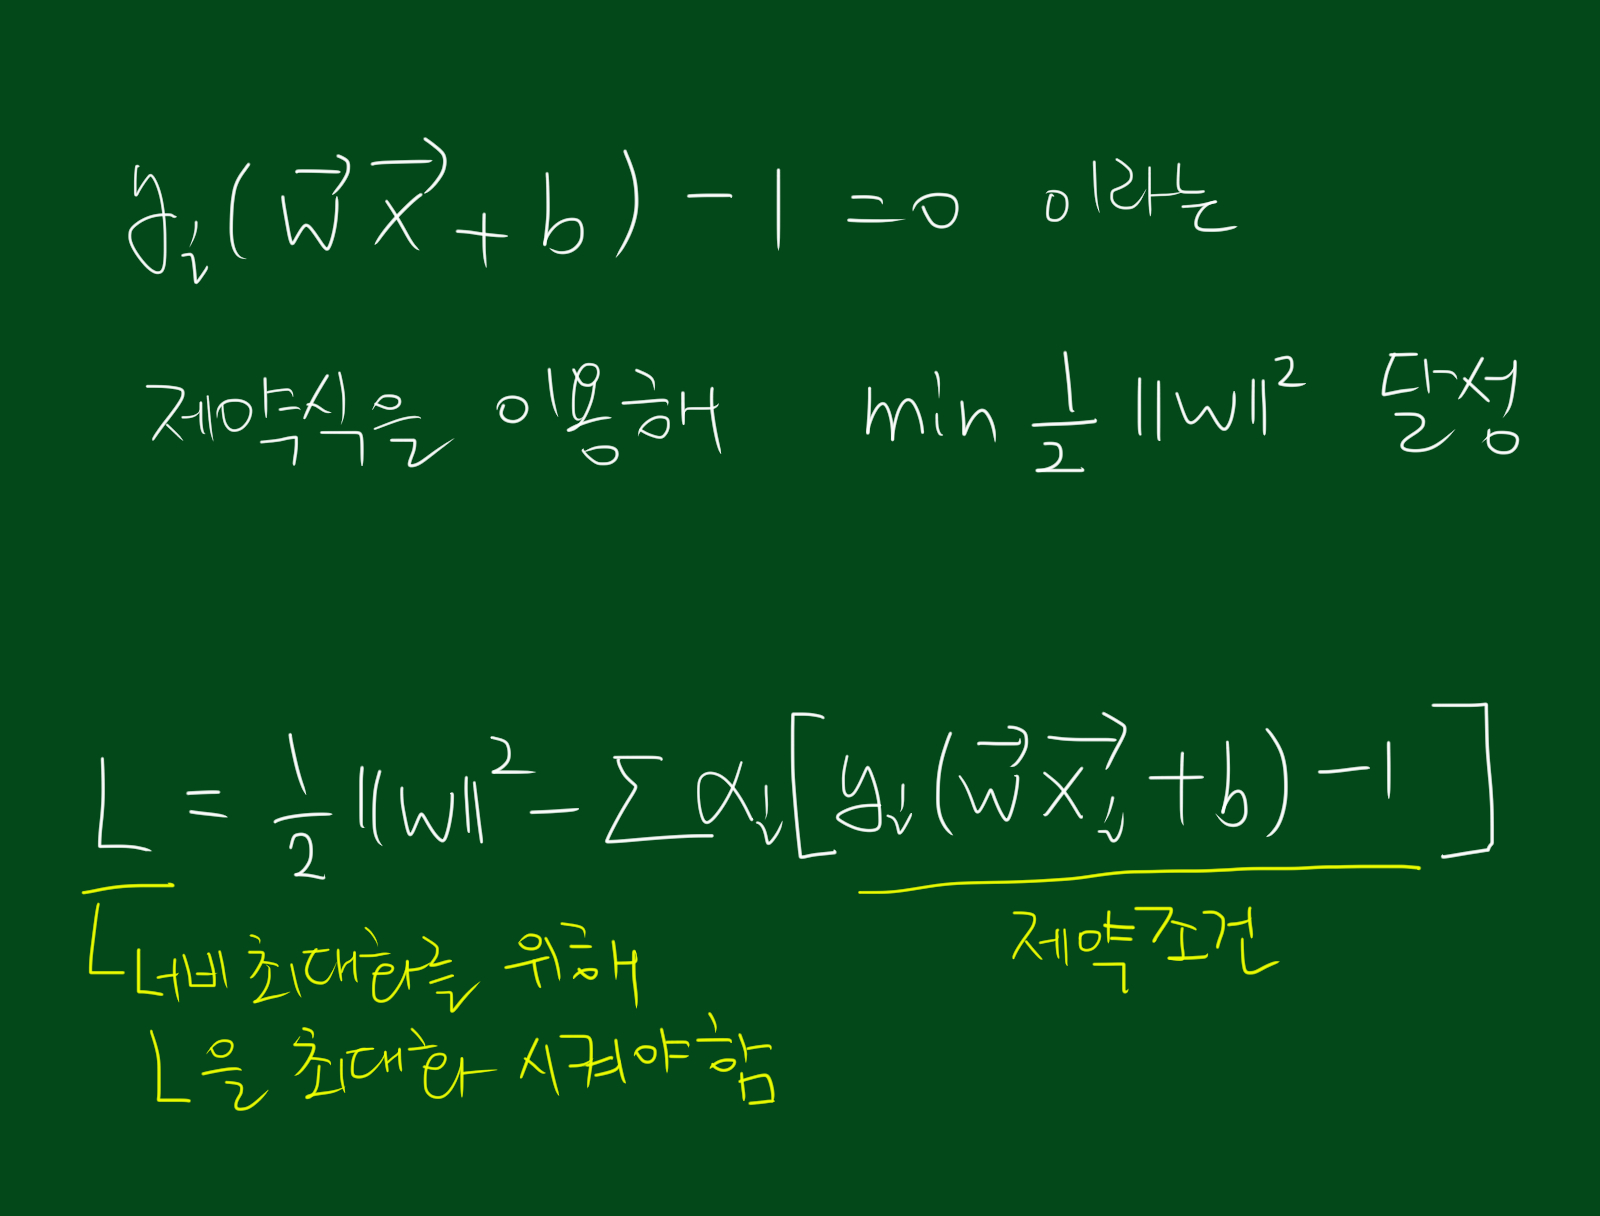 yᵢ(w⃗ x⃗ + b) - 1 = 0 이라는
제약식을 이용해 min 1/2 ||w||² 달성
L = 1/2 ||w||² - Σ αᵢ[yᵢ(w⃗ x⃗ᵢ + b) - 1]
너비 최대화를 위해
L을 최대화 시켜야함
제약조건